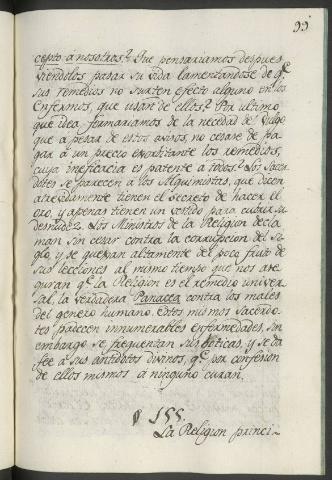 99
cepto a nosotros? Que pensariamos despues
viendolos pasar su vida lamentandose de qe.
sus remedios no surten efecto alguno en los
Enfermos, que usan de ellos? Por ultimo
que idea formariamos de la necedad del Vulgo
que a pesar de estos avisos, no cesase de pa-
gar á un precio exorbitante los remedios,
cuya ineficacia es patente a todos? Los Sacer-
dotes se parecen a los Alquimistas, que dicen
atrevidamente tienen el Secreto de hacer el
oro, y apenas tienen un vestido para cubrir su
desnudez. Los Ministros de la Religion decla-
man sin cesar contra la corrupcion del Si-
glo, y se quejan altamente del poco fruto de
sus lecciones al mismo tiempo que nos ase-
guran qe. la Religion es el remedio univer-
sal, la verdadera Panacea contra los males
del genero humano. Estos mismos Sacerdo-
tes padecen innumerables enfermedades, sin
embargo se frequentan sus boticas, y se da
fee á sus antidotos divinos, qe. por confesion
de ellos mismos a ninguno curan.
§ 155.
La Religion princi-